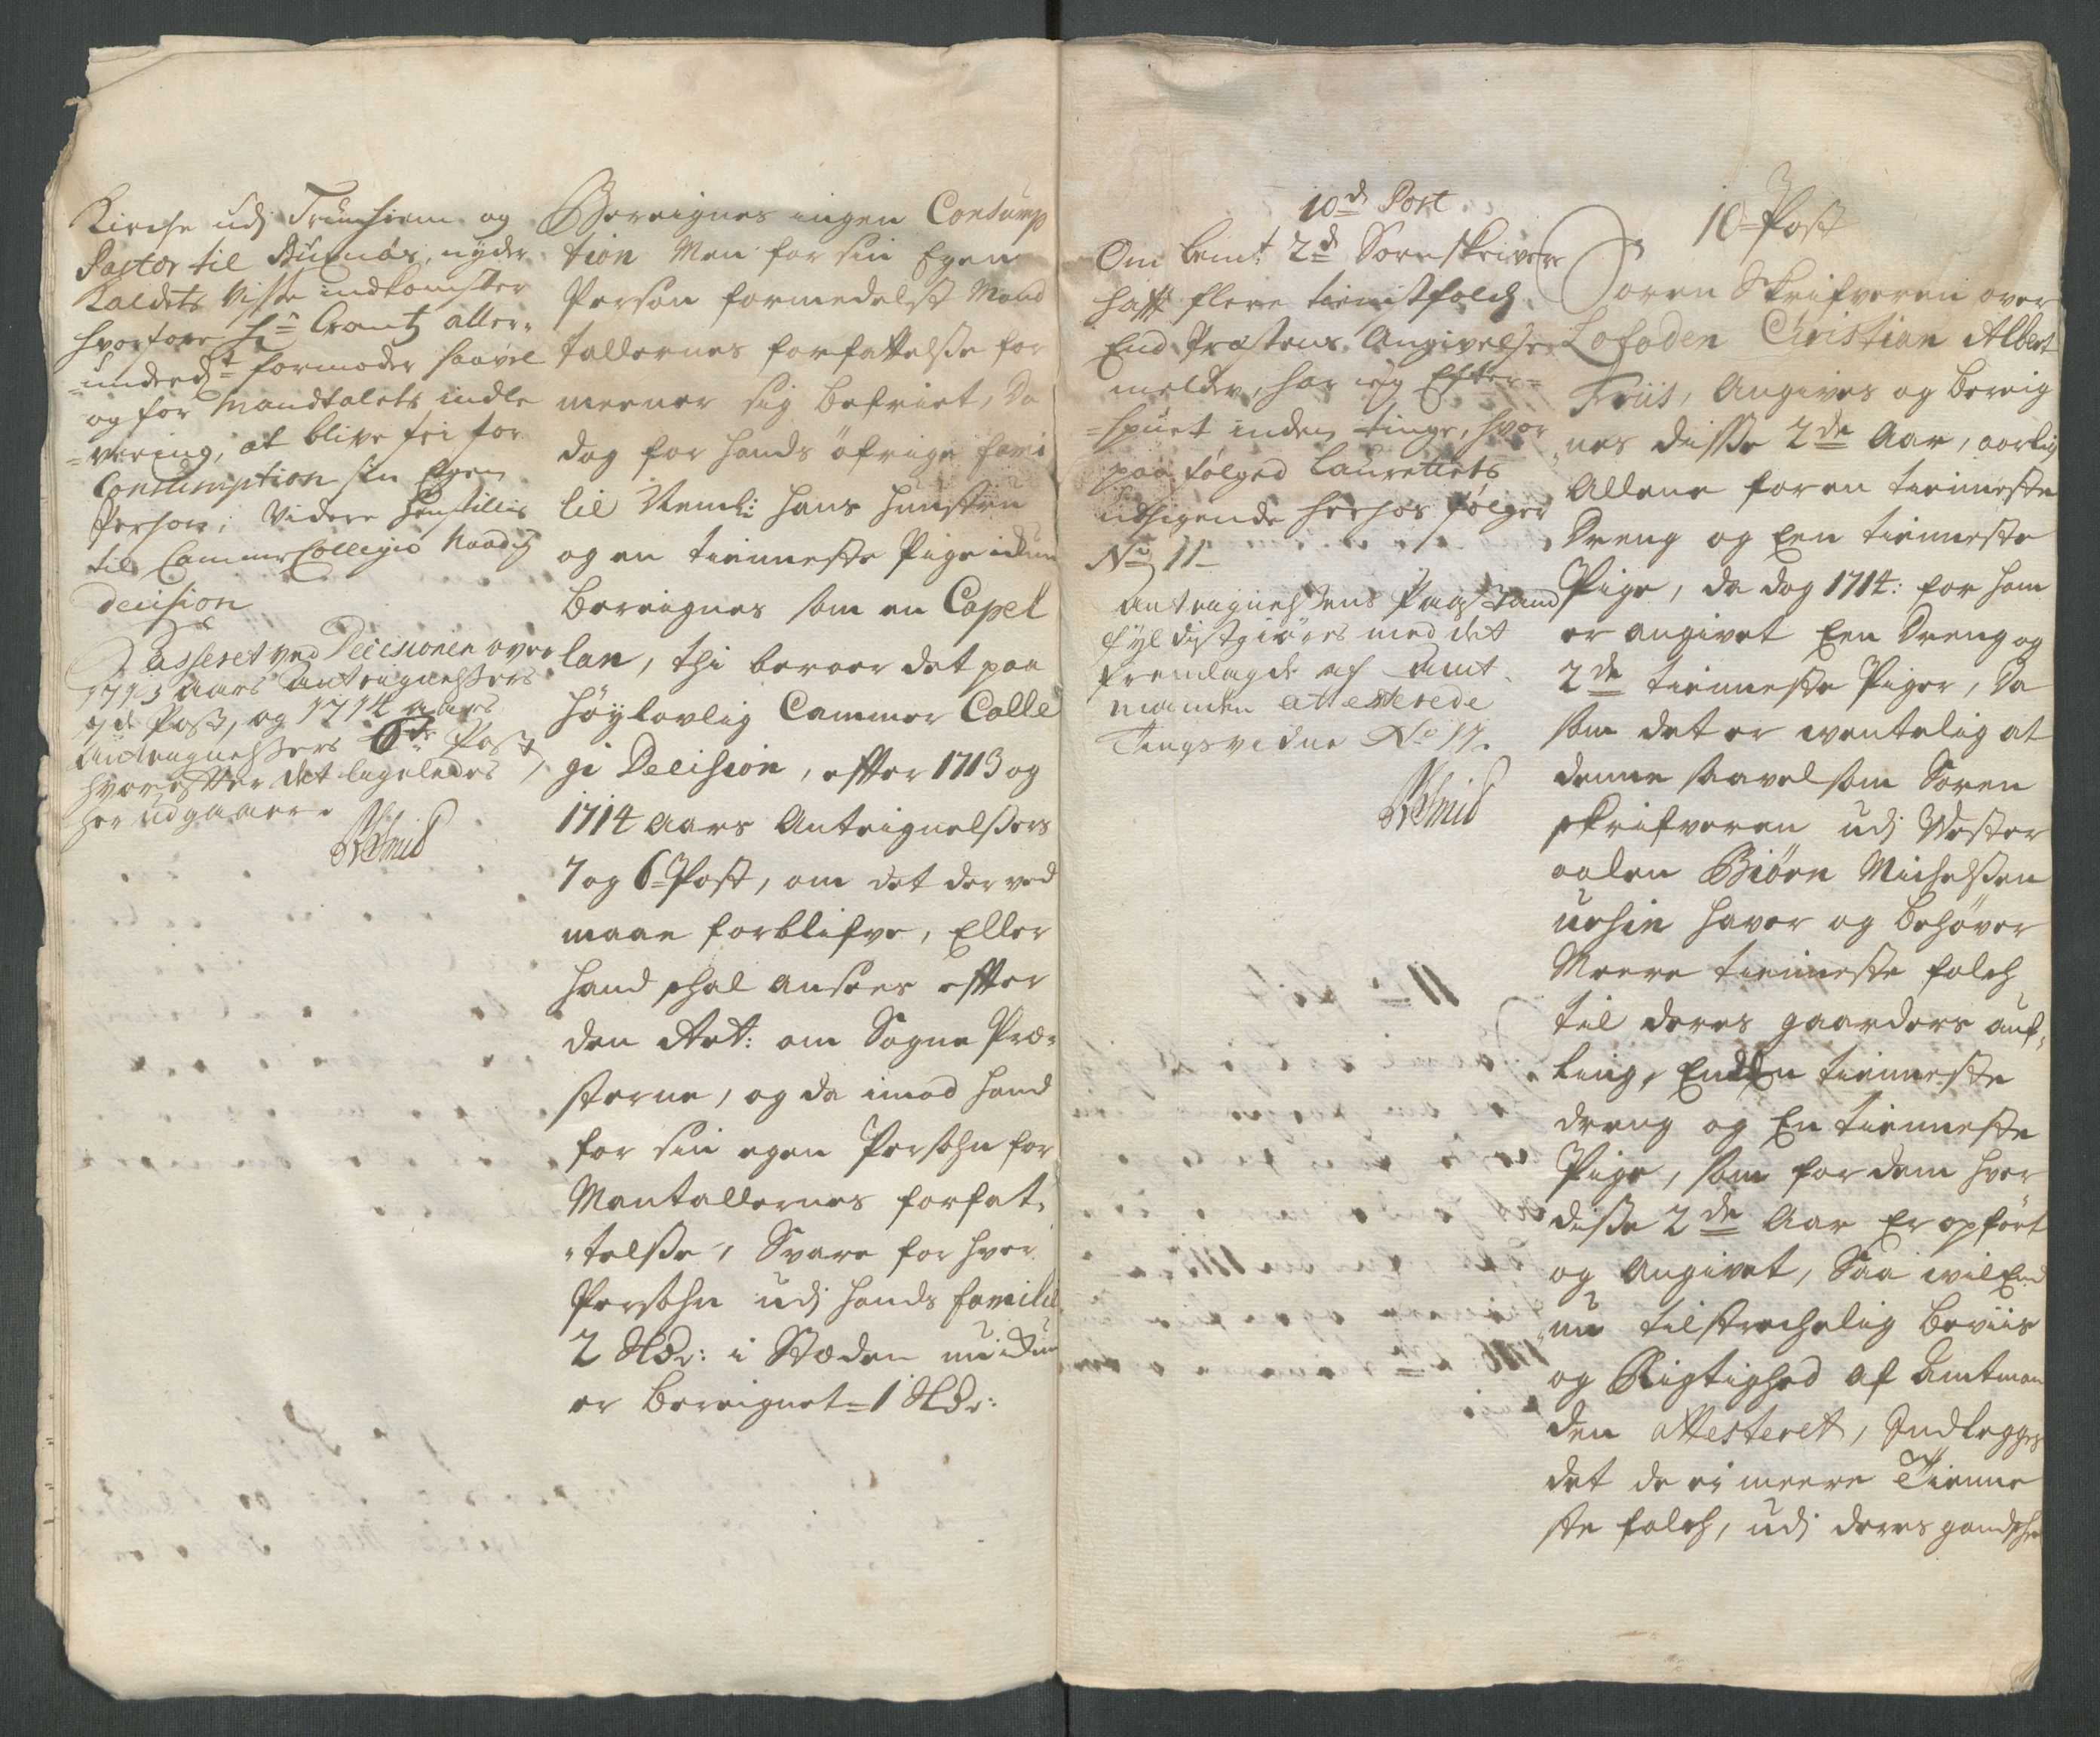 Kirche udj Trundhiem og
Pastor til Buxnæs, nyder
Kaldets visse indkomster
hvorfore Hr Crantz aller=
=underdst formoder saavel
og for Mandtalets indle
=vering, at blive fri for
Consumption sin Egen
Person; Videre henstillis
til Cammer Collegio Naadig
decision
Passeret ved Decisionen over
1713 aars Antegnelssers
7de Post, og 1714 aars
Antegnelssers 6de Post,
hvorefter det ligeledes
her udgaaer.
Bereignes ingen Consump
tion Men for sin Egen
Person formedelst Mand
tallernes forfattelsse for
meener sig befriet, Da
dog for hands öfrige fami
lie Neml: hans Hustru
og en tienneste Pige ickun
bereignes som en Capel
lan, thi beroer det paa
höylovlig Cammer Colle
gi Decision, effter 1713 og
1714 Aars Anteignelssers
7 og 6 Post, om det derved
maae forblifve, Eller
hand schal ansees effter
den Art: om Sogne Præ=
sterne, og da imod hand
for sin egen Persohn for
Mantallernes forfat=
=telsse, Svare for hver
Persohn udj hands familie
2 Rdr: i Stæden nu ickun
er bereignet = 1 Rdr:
10d Post
Om bemt 2d Sorenskrivere
hafft flere tienistfolch
End Præstens Angivelse
melder, har ieg Efter=
=spurt inden tinge, hvor
paa følged Laurettets
udsigende herhos følger
No 11
Anteignelssens Paastand
fyldistgiøres med det
fremlagde af Amt
manden attesterede
Tingsvidne No 17.
10 Post
Soren Skrifveren over
Lofoden Christian Albert
Friis, Angives og bereig
nes disse 2de Aar, aarlig
Allene for en tienneste
Dreng og Een tienneste
Pige, da dog 1714: for ham
er angivet Een Dreng og
2de tienneste Piger, Da
som det er wentelig at
denne saavelsom Soren
skrifveren udj Wester
aalen Biörn Michelssen
uehin haver og behöver
Meere tienneste folch
til deres gaarders auf=
ling, End En tienneste
dreng og En tienneste
Pige, som for dem hver
disse 2de Aar Er opfört
og Angivet, Saa wil End
nu tilstrechelig beviis
og Rigtighed af Amtman
den attesteret, Indlegges
det de ei meere Tienne
ste folch, udj deres gandsche